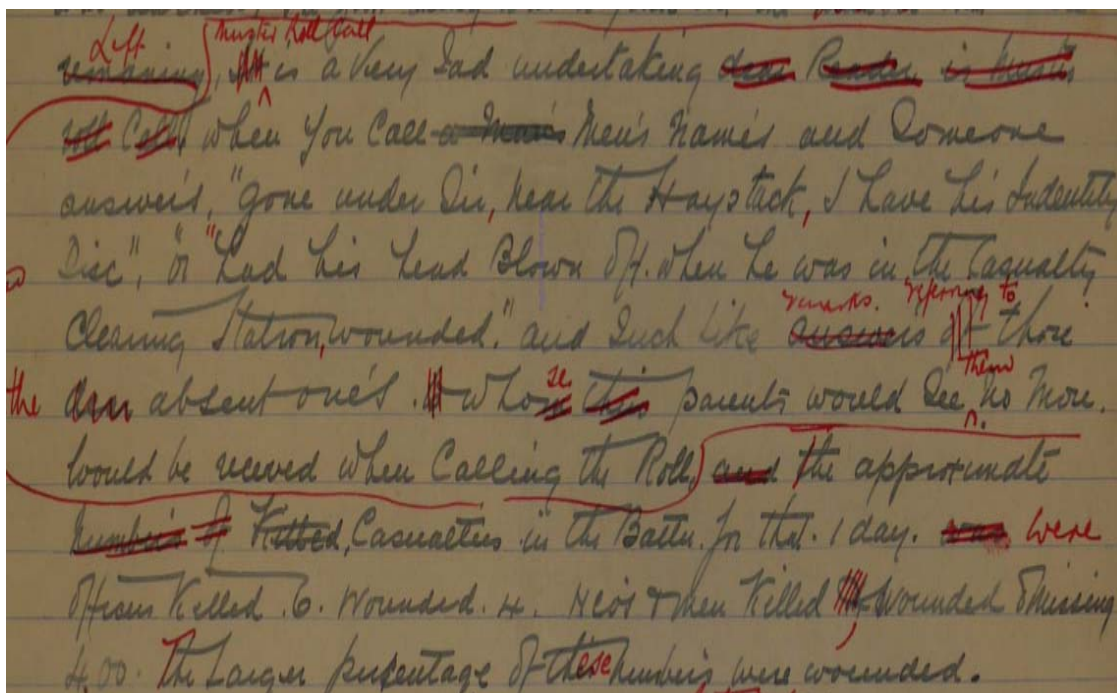 Left Muster Roll Call
remaining, It is a Very Sad undertaking dear Reader is Muster
roll Call, when You Call a Man's Men's Name's and Someone
answer's, "gone under Sir, near the Haystack, I have his Indentity
Disc", or "had his head Blown off. when he was in the Casualty
Clearing Station, wounded." and Such like answers of those
remarks. referring to
the absent one's. whose their parents would See them no More.
would be receved when Calling the Roll, and the approximate
Number's of Killed, Casualties in the Battn. for that. 1 day. was were
Officers Killed. 6. Wounded. 4. NCO's & Men Killed Wounded & Missing
4.00. The Larger percentage of these numbers were wounded.